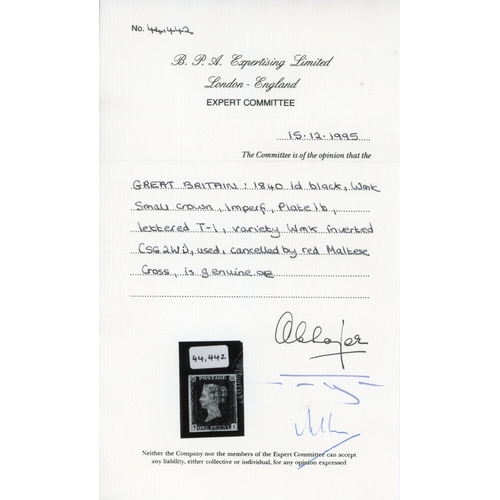 No. 44,442
B. P. A. Expertising Limited
London - England
EXPERT COMMITTEE
15.12.1995
The Committee is of the opinion that the
GREAT BRITAIN: 1840 1d black, Wmk
Small crown, imperf, Plate 1b,
lettered T-I, variety Wmk inverted
(SG 2Wi), used, cancelled by red Maltese
Cross, is genuine.
44,442
POSTAGE
ONE PENNY
Neither the Company nor the members of the Expert Committee can accept
any liability, either collective or individual, for any opinion expressed